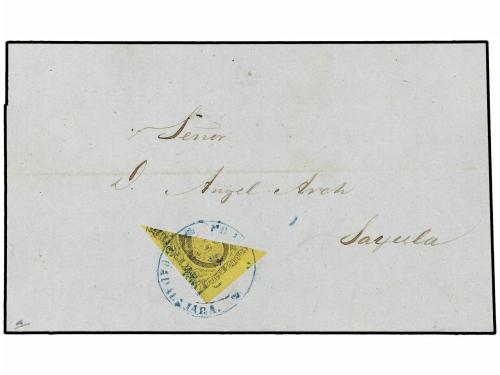 Señor
D. Angel Arch
Sayula
GUADALAJARA.